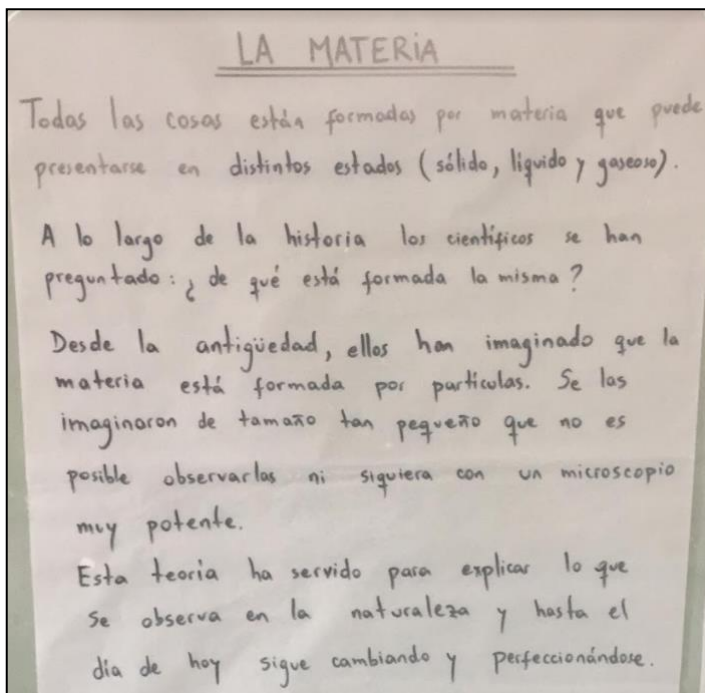 LA MATERIA
Todas las cosas están formadas por materia que puede
presentarse en distintos estados (sólido, líquido y gaseoso).
A lo largo de la historia los científicos se han
preguntado: ¿de qué está formada la misma?
Desde la antigüedad, ellos han imaginado que la
materia está formada por partículas. Se las
imaginaron de tamaño tan pequeño que no es
posible observarlas ni siquiera con un microscopio
muy potente.
Esta teoría ha servido para explicar lo que
se observa en la naturaleza y hasta el
día de hoy sigue cambiando y perfeccionándose.